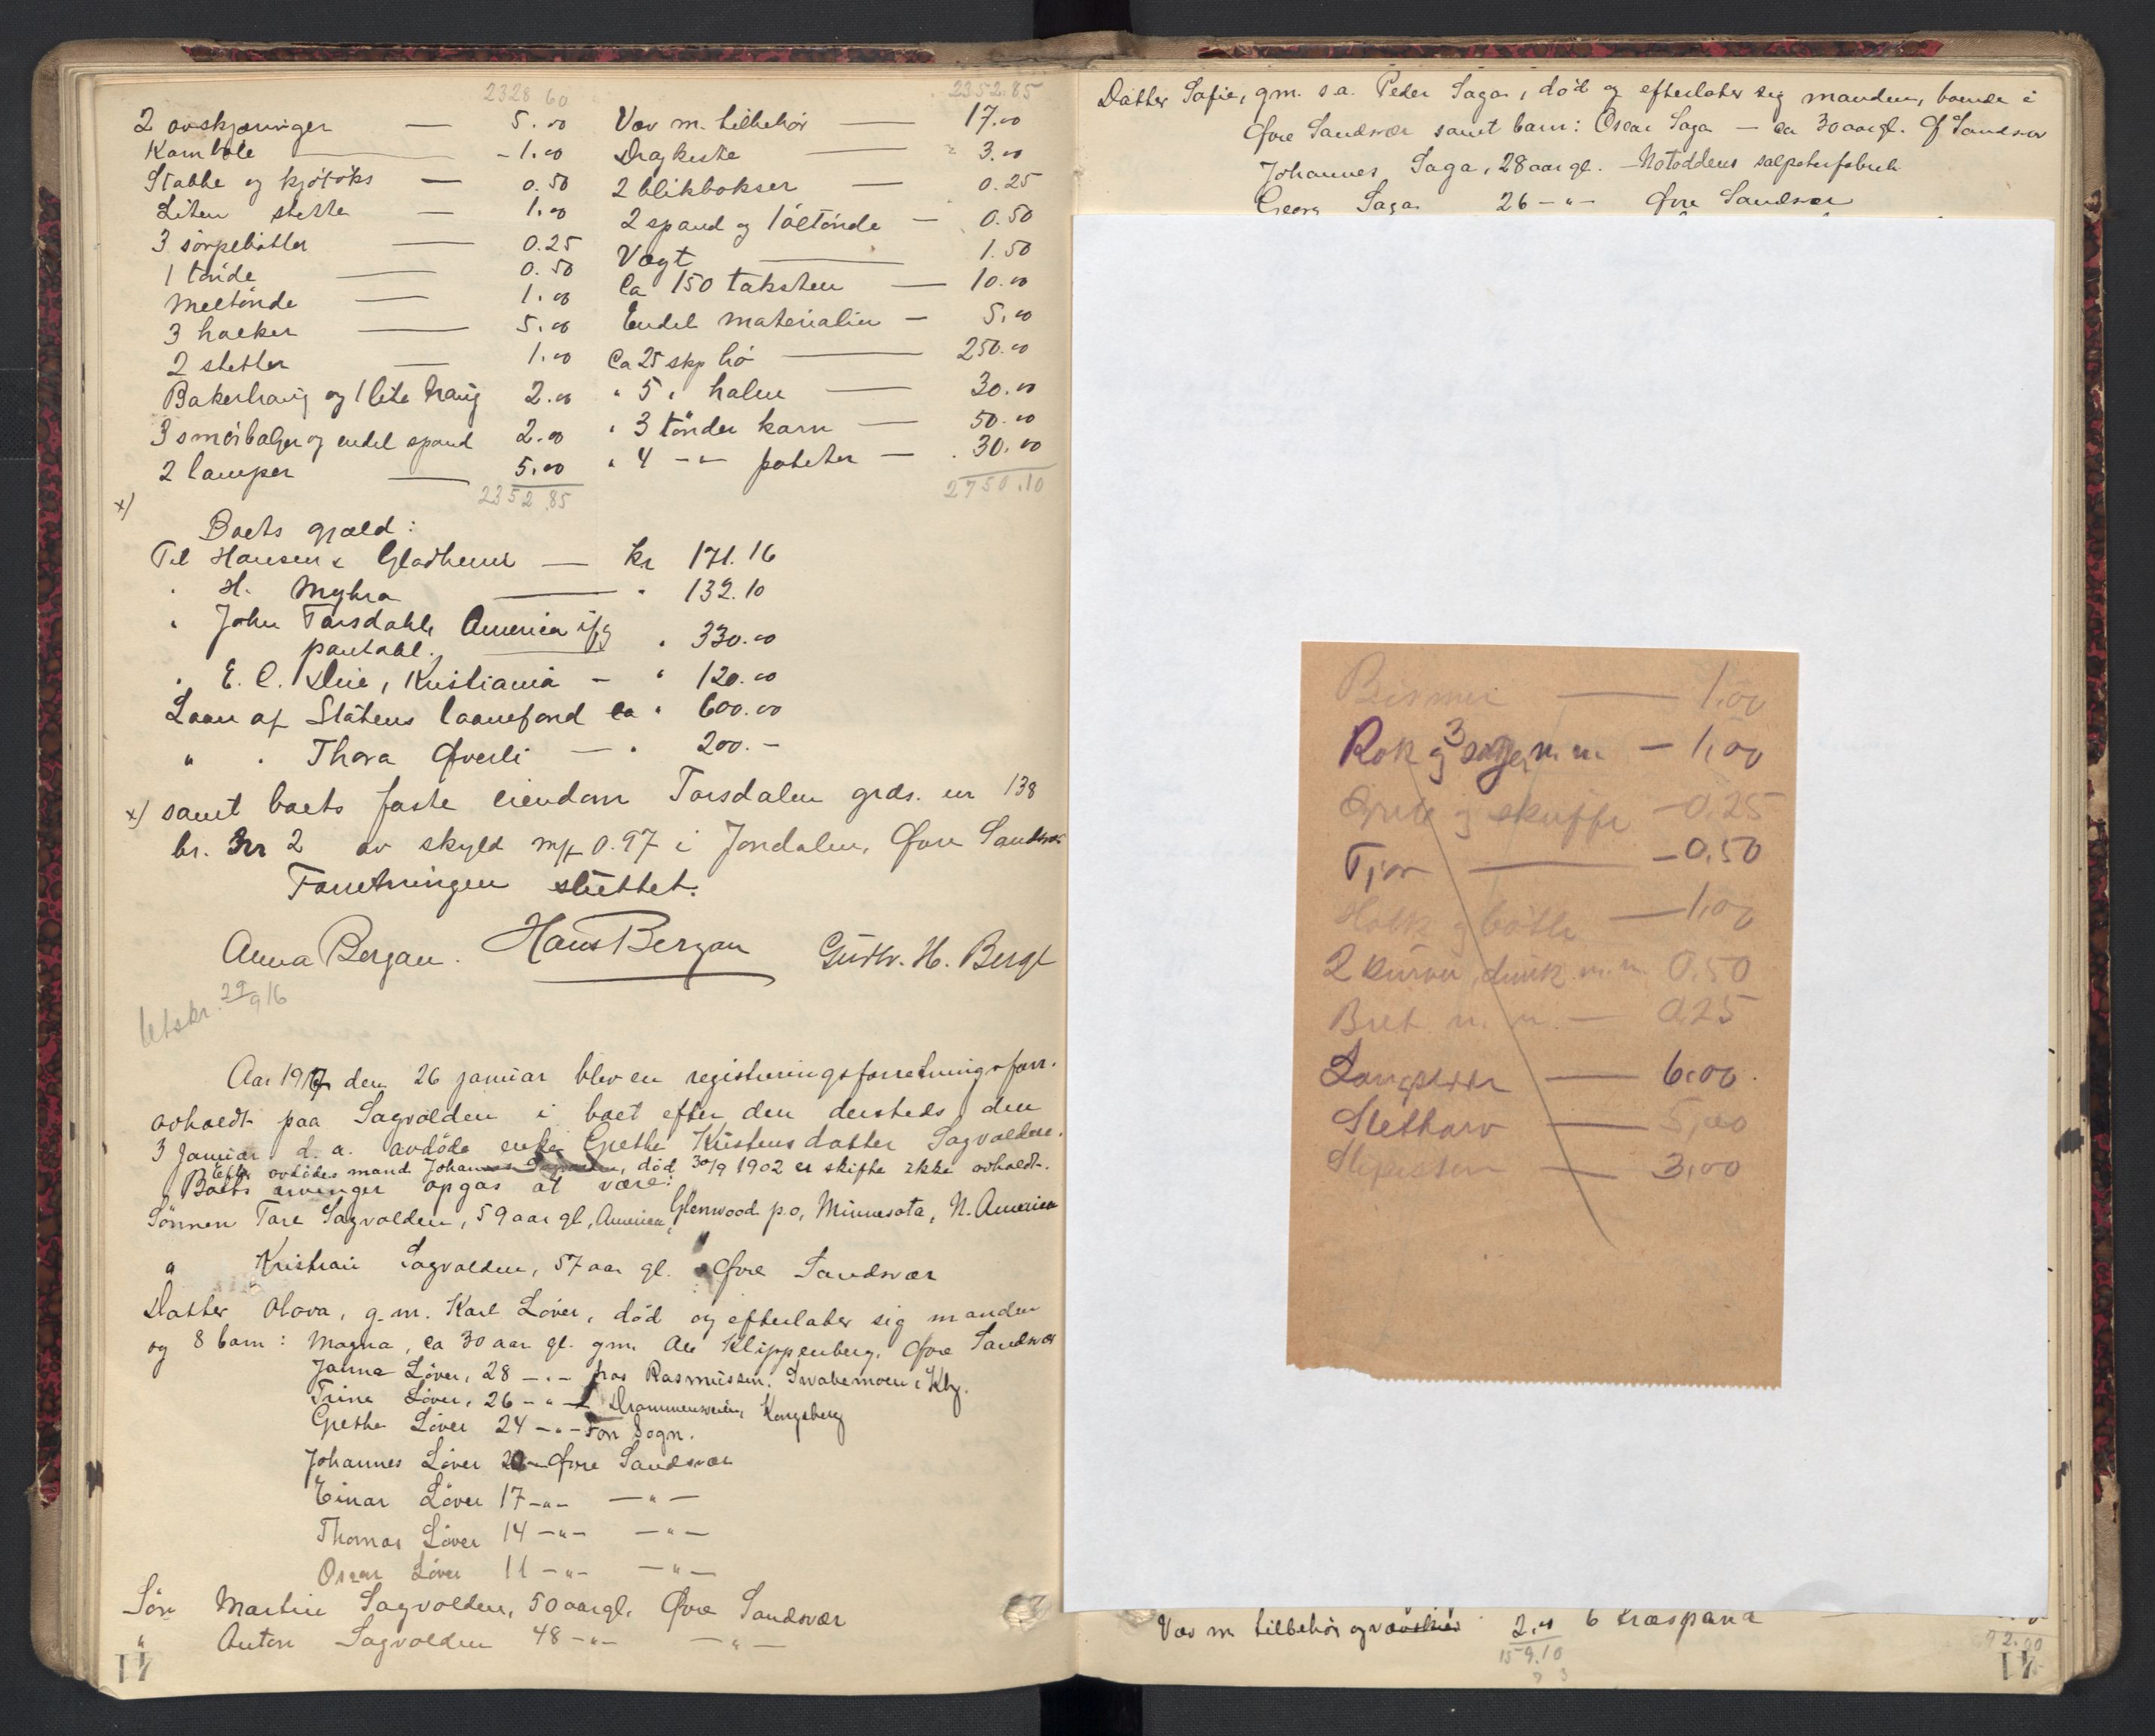 2328 60
2 avskjæringer — 5.00
— 1.00
Stabbe og kjøtøks — 0.50
Liten slette — 1.00
3 sørpebøtter — 0.25
1 tønde — 0.50
Meltønde — 1.00
3 holker — 5.00
2 sletter — 1.00
Bakertraug og 1 lite traug 2.00
3 smørbalger og endel spand 2.00
2 lamper — 5.00
2352.85
2352.85
Væv m. tilbehør — 17.00
Dragkiste — 3.00
2 blikbokser — 0.25
2 spand og 1 øltønde — 0.50
Vægt — 1.50
Ca 150 taksten — 10.00
Endel materialier — 5.00
Ca 25 skp hø — 250.00
" 5 " halm — 30.00
" 3 tønder korn — 50.00
" 4 -"- poteter — 30.00
2750.10
x)
Boets gjæld:
Til Hansen & Gladheim — kr 171.16
" H. Myhra — " 132.10
" John Torsdahl, America ifg
pantobl. " 330.00
" E. C. Due, Kristiania — " 120.00
Laan af Statens laanefond ca " 600.00
" " Thora Øverli — " 200.-
x) samt boets faste eiendom Torsdalen grds. nr 138
br. nr 2 av skyld mk 0.97 i Jondalen, Øvre Sandsvær
Forretningen sluttet.
Anna Bergan. Hans Bergan Gudbr. H. Berge
Utskr. 29/9 16
Aar 1917 den 26 januar blev en registreringsforretning forr.
avholdt paa Sagvolden i boet efter den dersteds den
3 Januar d. a. avdøde enke Grethe Kristensdatter Sagvolden.
Efter avdødes mand Johannes Sagvolden, død 30/9 1902 er skifte ikke avholdt.
Boets arvinger opgas at være:
Sønnen Tore Sagvolden, 59 aar gl, America, Glenwood p.o, Minnesota, N. America
" Kristian Sagvolden, 57 aar gl. Øvre Sandsvær
Datter Olava, g.m. Karl Løver, død og efterlater sig manden
og 8 barn: Magna, ca 30 aar gl. gm. Ole Klippenberg, Øvre Sandsvær
Janna Løver, 28 -"- hos Rasmussen, Svabemoen i Kbg.
Trine Løver, 26 -"- Drammensveien, Kongsberg
Grethe Løver 24 -"- Fon Sogn.
Johannes Løver 20 - Øvre Sandsvær
Einar Løver 17 -"- -"-
Thomas Løver 14 -"- -"-
Oscar Løver 11 -"- -"-
Søn Martin Sagvolden, 50 aar gl. Øvre Sandsvær
" Anton Sagvolden 48 -"- -"-
41
Datter Sofie, gm. s.a. Peder Saga, død og efterlater sig manden, boende i
Øvre Sandsvær samt barn: Oscar Saga — ca 30 aar gl. Ø. Sandsvær
Johannes Saga, 28 aar gl. Notoddens salpeterfabrik
Georg Saga 26 -"- Øvre Sandsvær
Bismer — 1,00
Rok og 3 sager m.m — 1,00
Gryte og skuffe — 0.25
Tjor — 0.50
Holk og bøtte — 1,00
2 kurver, dunk m.m. 0.50
Bret m. m. — 0.25
— 6.00
Sletharv — 5,00
Slipesten — 3,00
Væv m tilbehør og 2.00
159.10
6 træspand
92.00
41